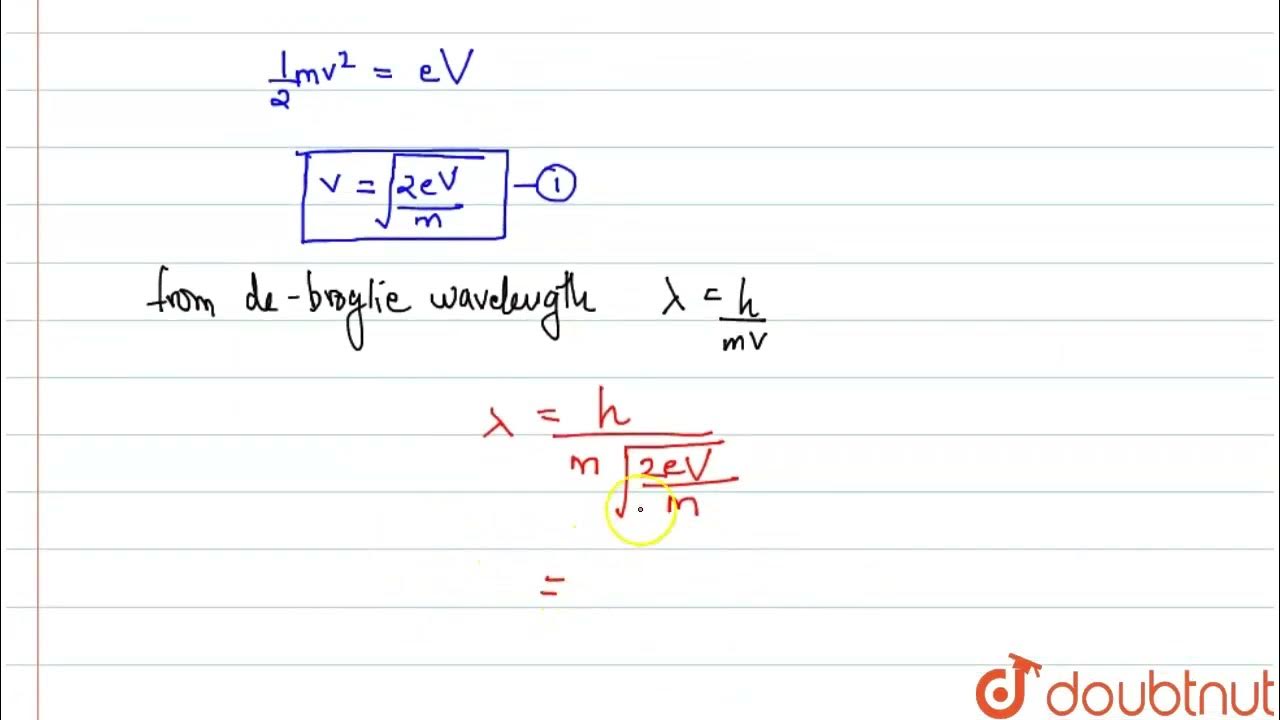 1/2 mv² = eV
v = √(2eV/m) —①
from de-broglie wavelength λ = h/mv
λ = h/(m√(2eV/m))
=
doubtnut